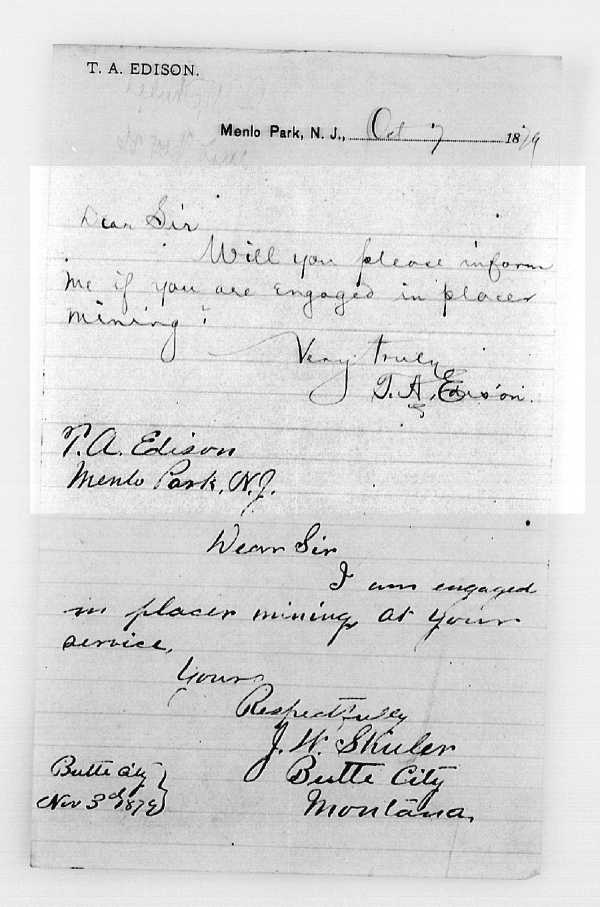 T. A. EDISON.
Menlo Park, N. J., Oct 7 1879
Dear Sir
Will you please inform
me if you are engaged in placer
mining?
Very truly
T. A. Edison.
T. A. Edison
Menlo Park, N.J.
Dear Sir
I am engaged
in placer mining, at your
service,
Yours
Respectfully
J. W. Skuler
Butte City
Montana,
Butte City
Nov 3d 1879